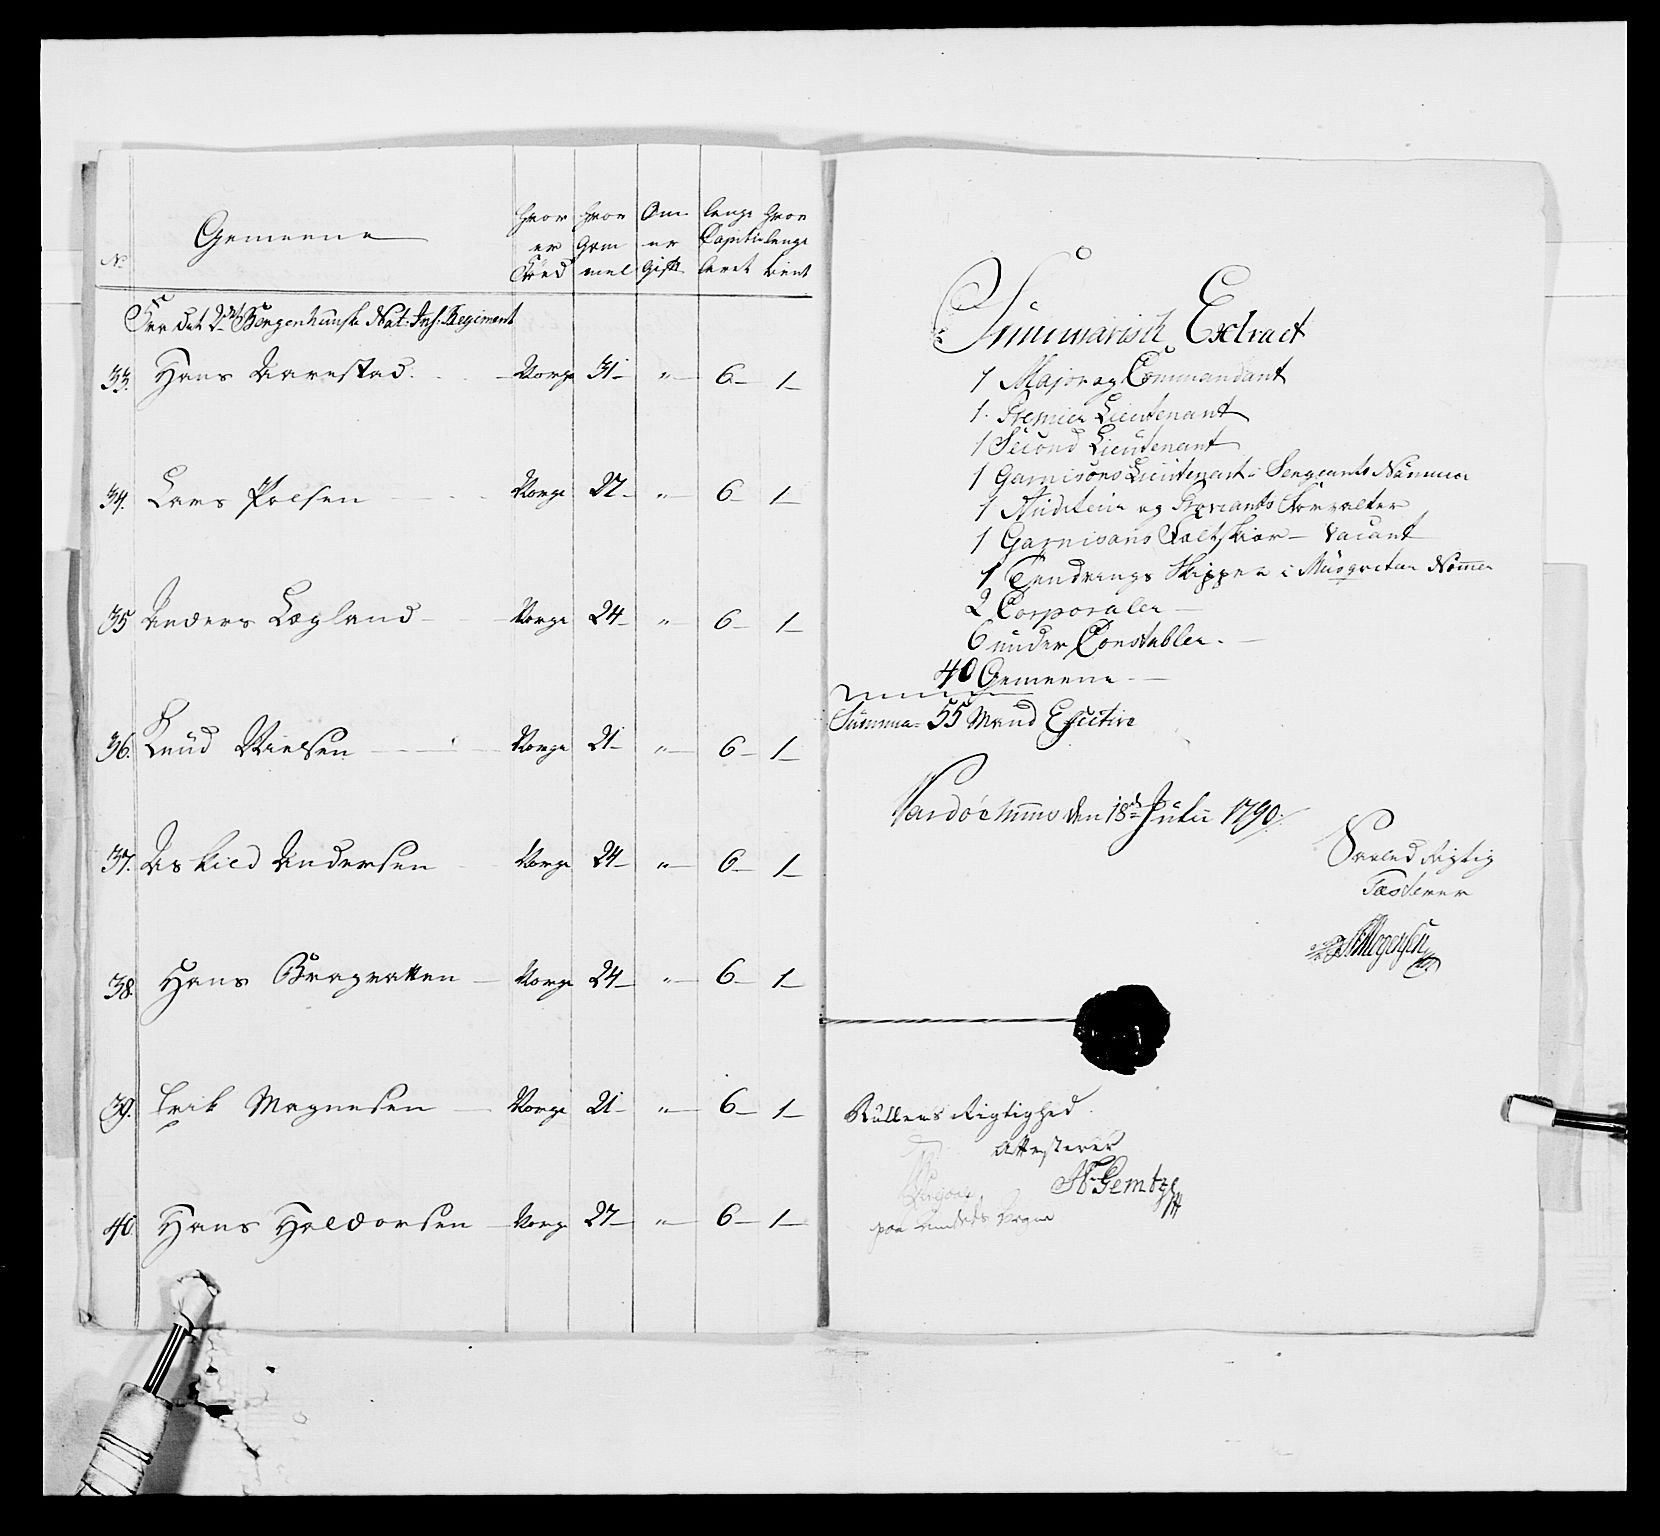 No
Gemeene
Hvor er Föed
Hvor Gam mel
Om er Gift
lenge Capitu leret
Hvor lenge tient
Fra det 2det Bergenhuuske Nat: Inf: Regiment
33. Hans Aarestad. Norge 31 " 6 1
34. Lars Polsen Norge 22 " 6 1
35 Anders Lægland Norge 24 " 6 1
36. Knud Nielsen Norge 21 " 6 1
37. Askild Andersen Norge 24 " 6 1
38. Hans Bragvatten Norge 24 " 6 1
39. Erik Magnesen Norge 21 " 6 1
40. Hans Haldorsen Norge 27 " 6 1
Summarisk Extract
1 Major og Commandant
1. Premier Lieutenant
1 Second Lieutenant
1 Garnisons Lieutenant i Sergeants Nummer
1 Auditeur og Proviants Forvalter
1 Garnisons Feltskiær Vacant
1 Tendrings Skipper i Musqveteer Nommer
2 Corporaler
6 under Constabler.
40 Gemeene
Summa 55 Mand Efective
Vardöehuus den 18de Julii 1790
Saaled Rigtig
Tæsterer
Rullens Rigtighed
Attesterer
H Gemtz
paa Amtets Vegne